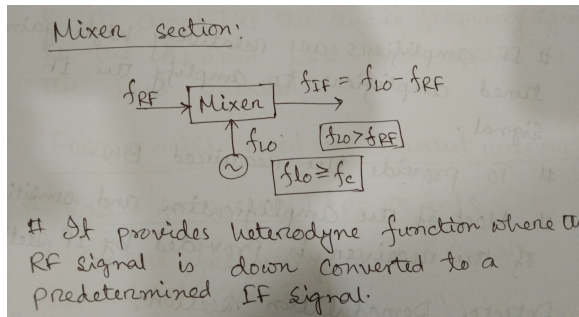 Mixer section:
fIF = fLO - fRF
fRF
Mixer
fLO
fLO > fRF
fLO ≥ fc
# It provides heterodyne function where a
RF signal is down converted to a
predetermined IF signal.